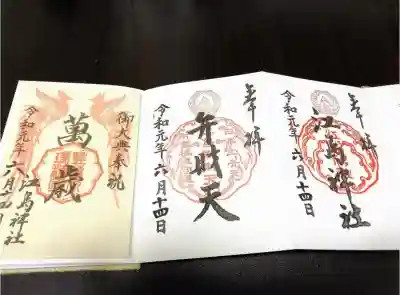 奉拝
江島神社
令和元年六月十四日
奉拝
弁財天
令和元年六月十四日
御大典奉祝
萬歳
令和元年六月十四日
江島神社